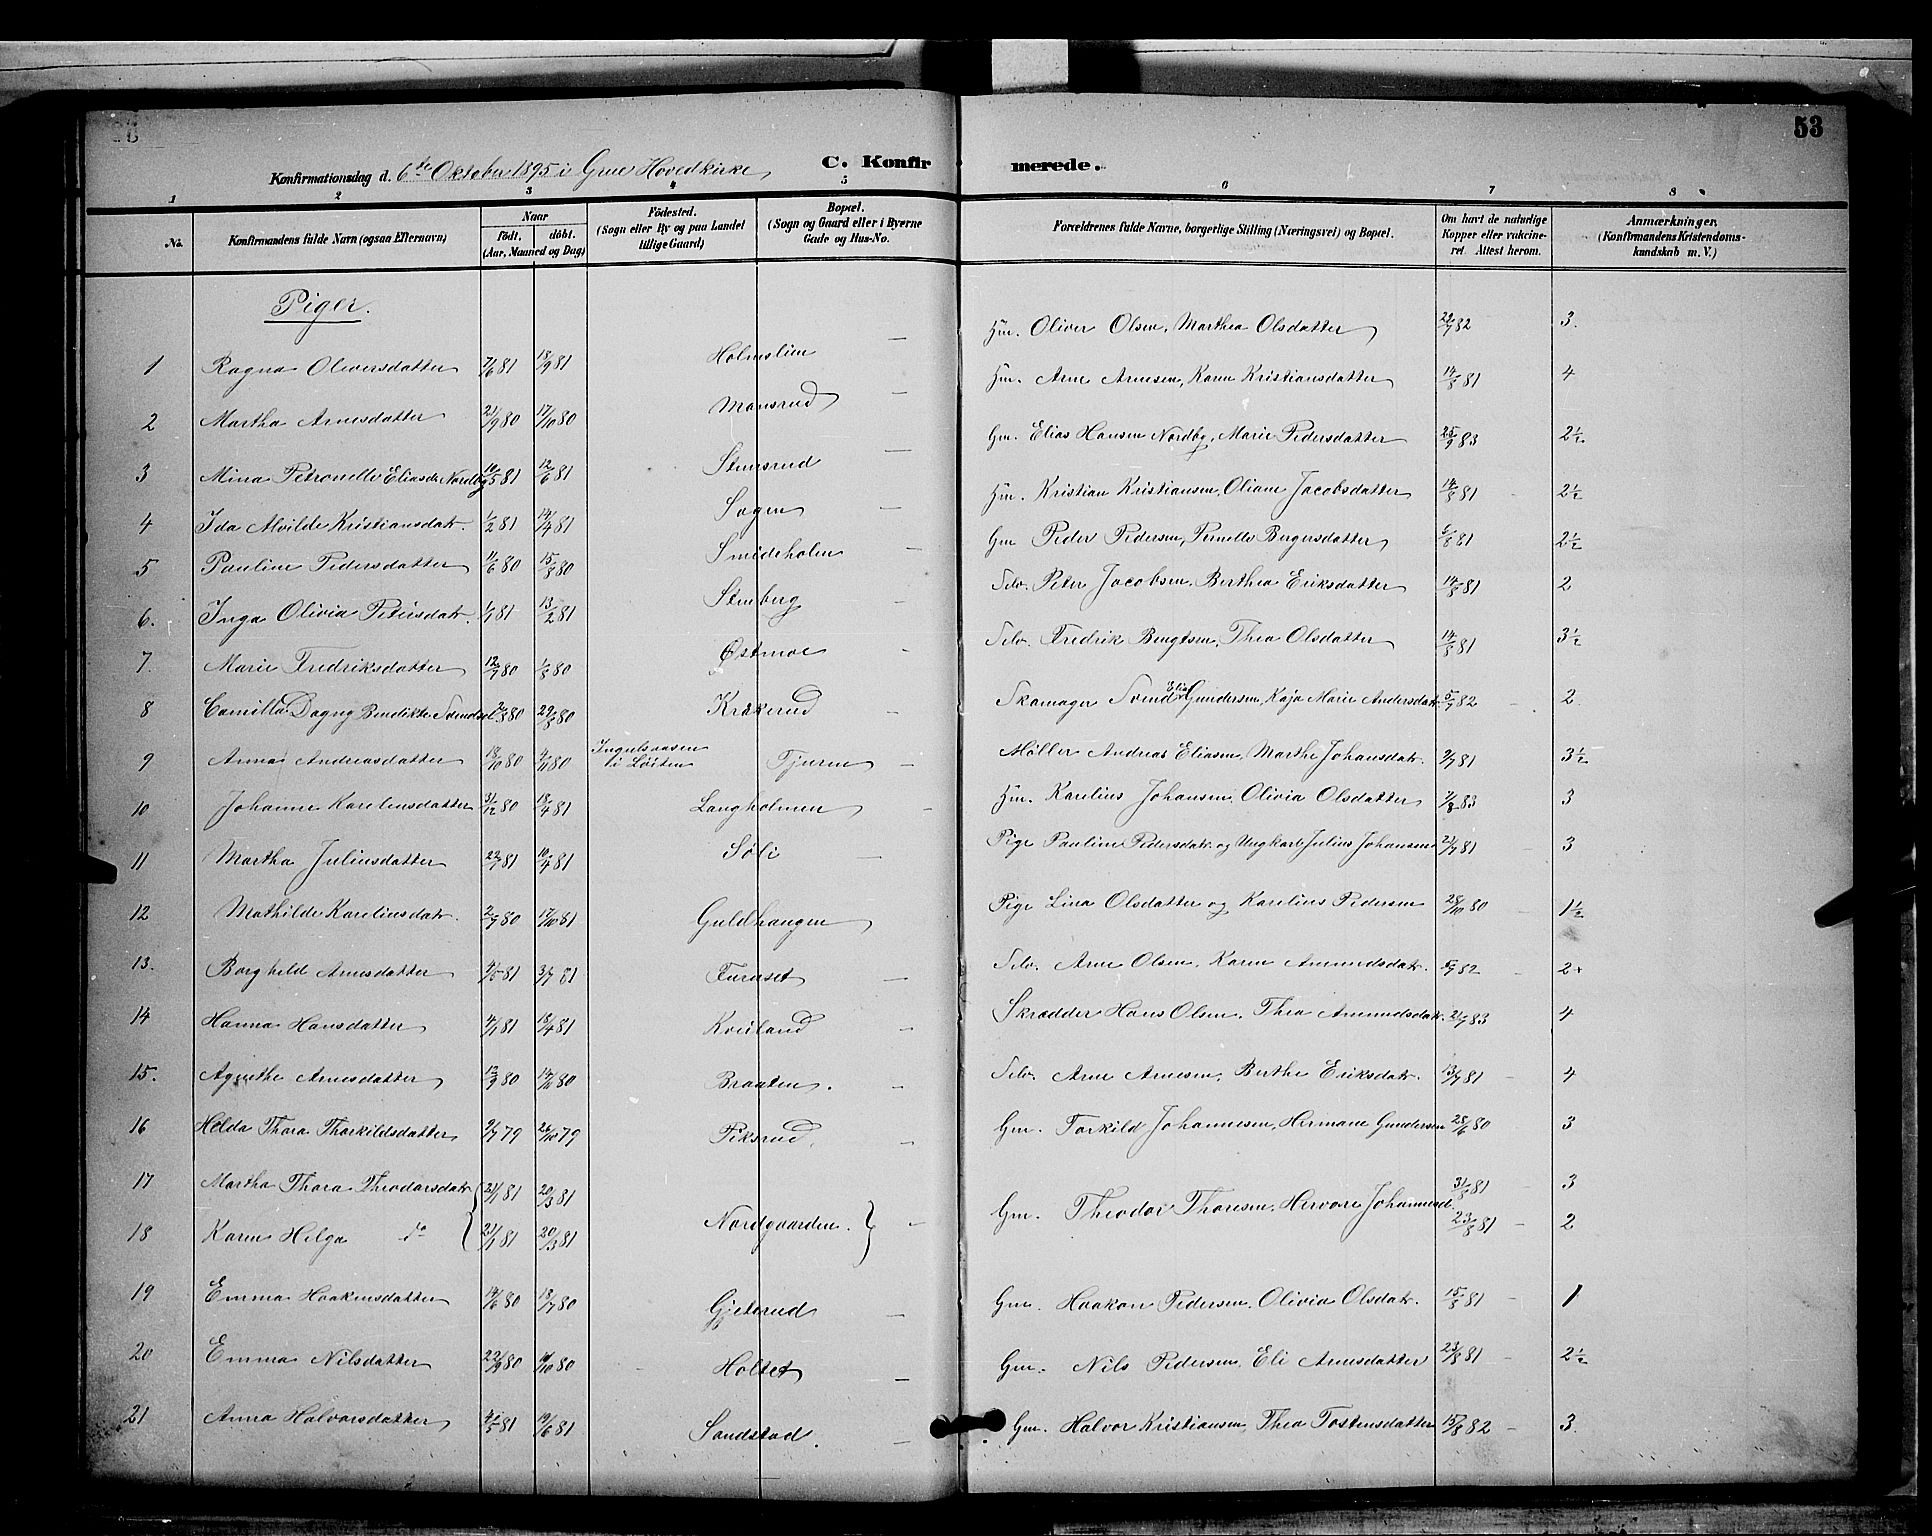 53
Konfirmationsdag d. 6te Oktober 1895 i Grue Hovedkirke
C. Konfirmerede.
1 2 3 4 5 6 7 8
No. Konfirmandens fulde Navn (ogsaa Efternavn) Naar födt. döbt. (Aar, Maaned og Dag) Födested. (Sogn eller By og paa Landet tillige Gaard) Bopæl. (Sogn og Gaard eller i Byerne Gade og Hus-No. Forældrenes fulde Navne, borgerlige Stilling (Næringsvei) og Bopæl. Om havt de naturlige Kopper eller vakcineret. Attest herom. Anmærkninger. (Konfirmandens Kristendomskundskab m. V.)
Piger.
1 Ragna Oliversdatter 7/6 81 18/9 81 Holmslien — Hm. Oliver Olsen, Marthea Olsdatter 22/7 82 3.
2 Martha Arnesdatter 21/9 80 17/10 80 Monsrud — Hm. Arne Arnesen, Karen Kristiansdatter 14/8 81 4
3 Mina Petronelle Eliasdr Nordby 10/5 81 12/6 81 Stensrud — Gm. Elias Hansen Nordby, Marie Pedersdatter 25/9 83 2½
4 Ida Alvilde Kristiansdatr. 1/2 81 14/4 81 Sogen — Hm. Kristian Kristiansen, Oliane Jacobsdatter 14/8 81 2½
5 Pauline Pedersdatter 11/6 80 15/8 80 Smideholen — Gm Peder Pedersen, Pernelle Bergersdatter 5/8 81 2½
6. Inga Olivia Petersdatr. 1/1 81 13/2 81 Stenberg — Selv. Peter Jacobsen, Berthea Eriksdatter 14/8 81 2
7 Marie Fredriksdatter 12/7 80 1/8 80 Østmoe - Selv. Fredrik Bengtsen, Thea Olsdatter 14/8 81 3½
8 Camilla Dagny Bendikte Svendsd. 80 29/8 80 Krakerud — Skomager Svend Elias Gundersen, Kaja Marie Andersdatr. 5/7 82 2
9 Anna Andreasdatter 18/10 80 4/11 80 i Löiten Tjuren — Møller Andreas Eliasen, Marthe Johansdatr. 81 3½
10 Johanne Kareliusdatter 31/12 80 18/4 81 Langholmen - Hm. Karelius Johansen, Olivia Olsdatter 83 3
11 Martha Juliusdatter 22/1 81 10/4 81 Söli — Pige Pauline Pedersdatr. og Ungkarl Julius Johansen 21/7 81 3
12 Mathilde Kareliusdatr. 80 17/10 81 Guldhaugen Pige Lina Olsdatter og Karelius Pedersen 28/10 80 1½
13. Borghild Arnesdatter 4/5 81 3/7 81 Furuset — Selv. Arne Olsen, Karen Amundsdatr. 82 - 2+
14 Hanna Hansdatter 4/1 81 18/4 81 Kveiland - Skrædder Hans Olsen, Thea Amundsdatr. 21/7 83 4
15. Agnethe Arnesdatter 12/9 80 14/11 80 Braaten. - Selv. Arne Arnesen, Berthe Eriksdatr. 13/7 81 - 4
16 Helda Thora Thorkildsdatter 9/7 79 26/10 79 Piksrud. — Gm. Torkild Johannesen, Hermane Gundersen 28/6 80 3
17 Martha Thora Theodorsdatr. 21/1 81 20/3 81 Nordgaarden. — Gm. Theodor Thoresen, Hervore Johannesd. 31/8 81 3
18 Karen Helga do 21/1 81 20/3 81 23/8 81 - 2
19 Emma Haakensdatter 14/6 80 18/7 80 Gjeterud — Gm. Haakon Pedersen, Olivia Olsdatr. 15/8 81 - 1
20 Emma Nilsdatter 22/9 80 80 Holtet — Gm. Nils Pedersen, Eli Arnesdatter 23/8 81 - 2½
21 Anna Halvorsdatter 4/5 81 19/6 81 Sandstad. — Gm. Halvor Kristiansen, Thea Tostensdatter 15/8 82 - 3.